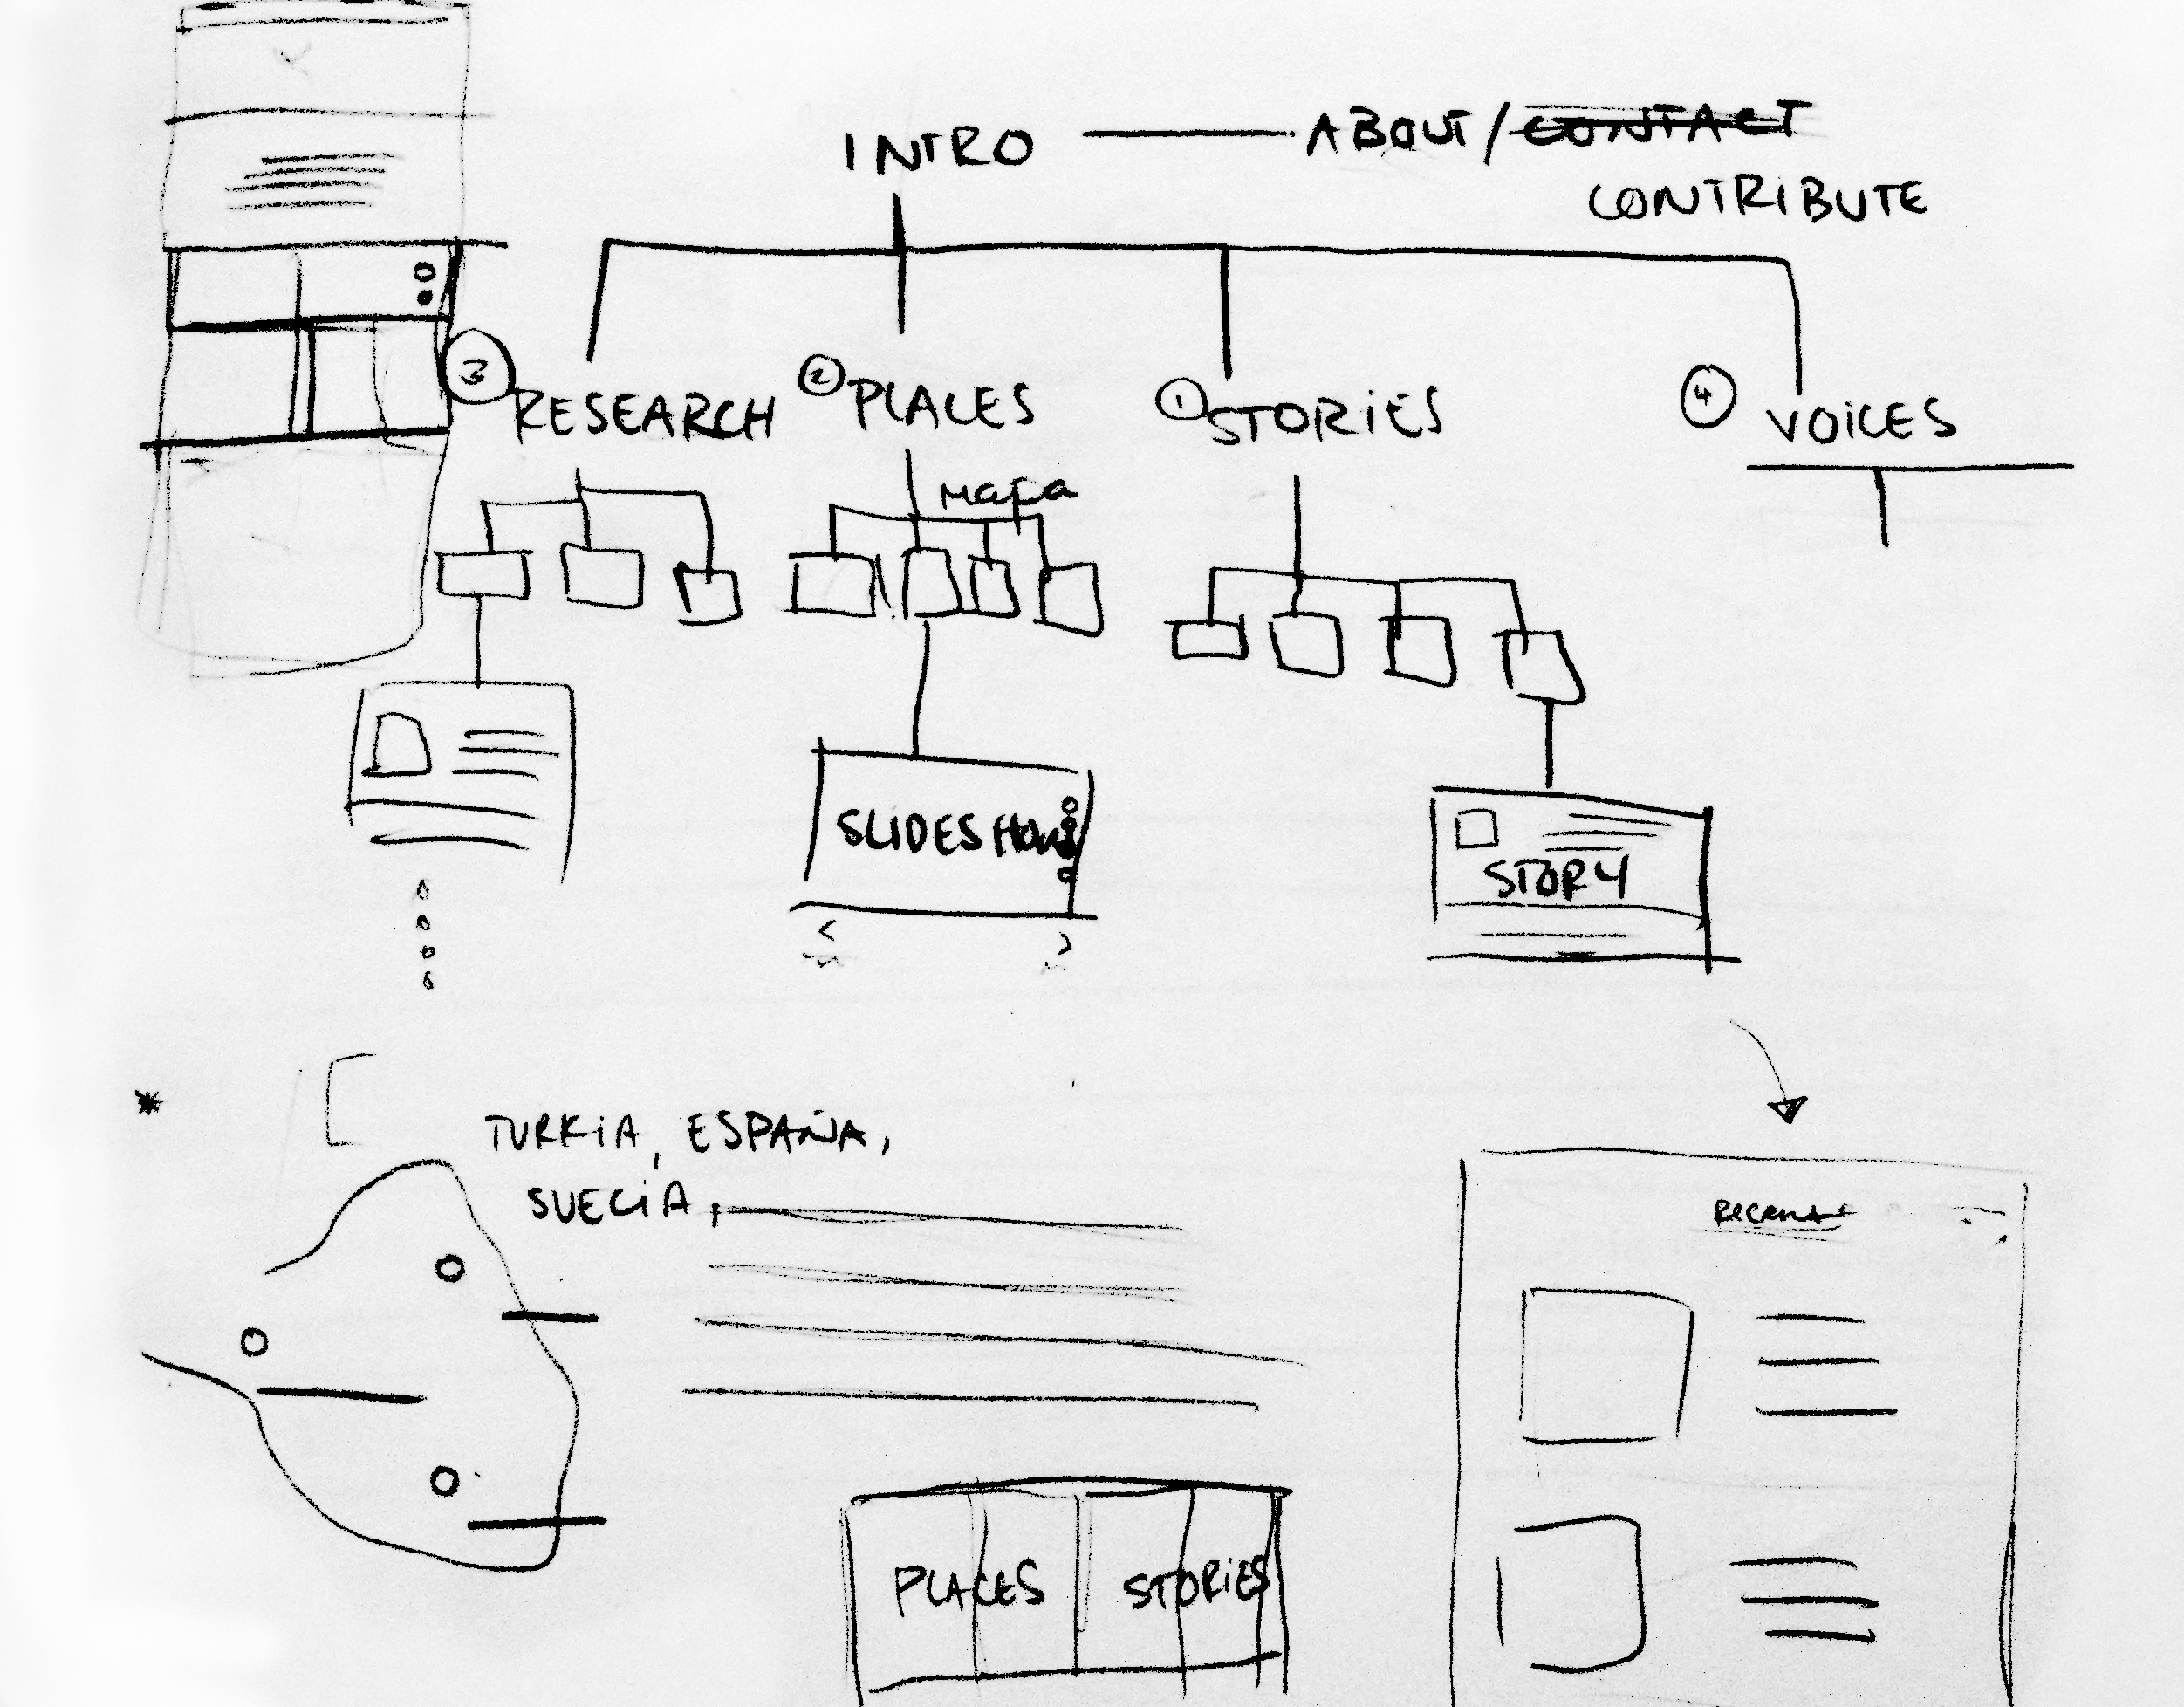 INTRO ABOUT / CONTACT
CONTRIBUTE
3 RESEARCH 2 PLACES 1 STORIES 4 VOICES
Mapa
SLIDESHOW
STORY
* TURKIA, ESPAÑA,
SUECIA,
PLACES STORIES